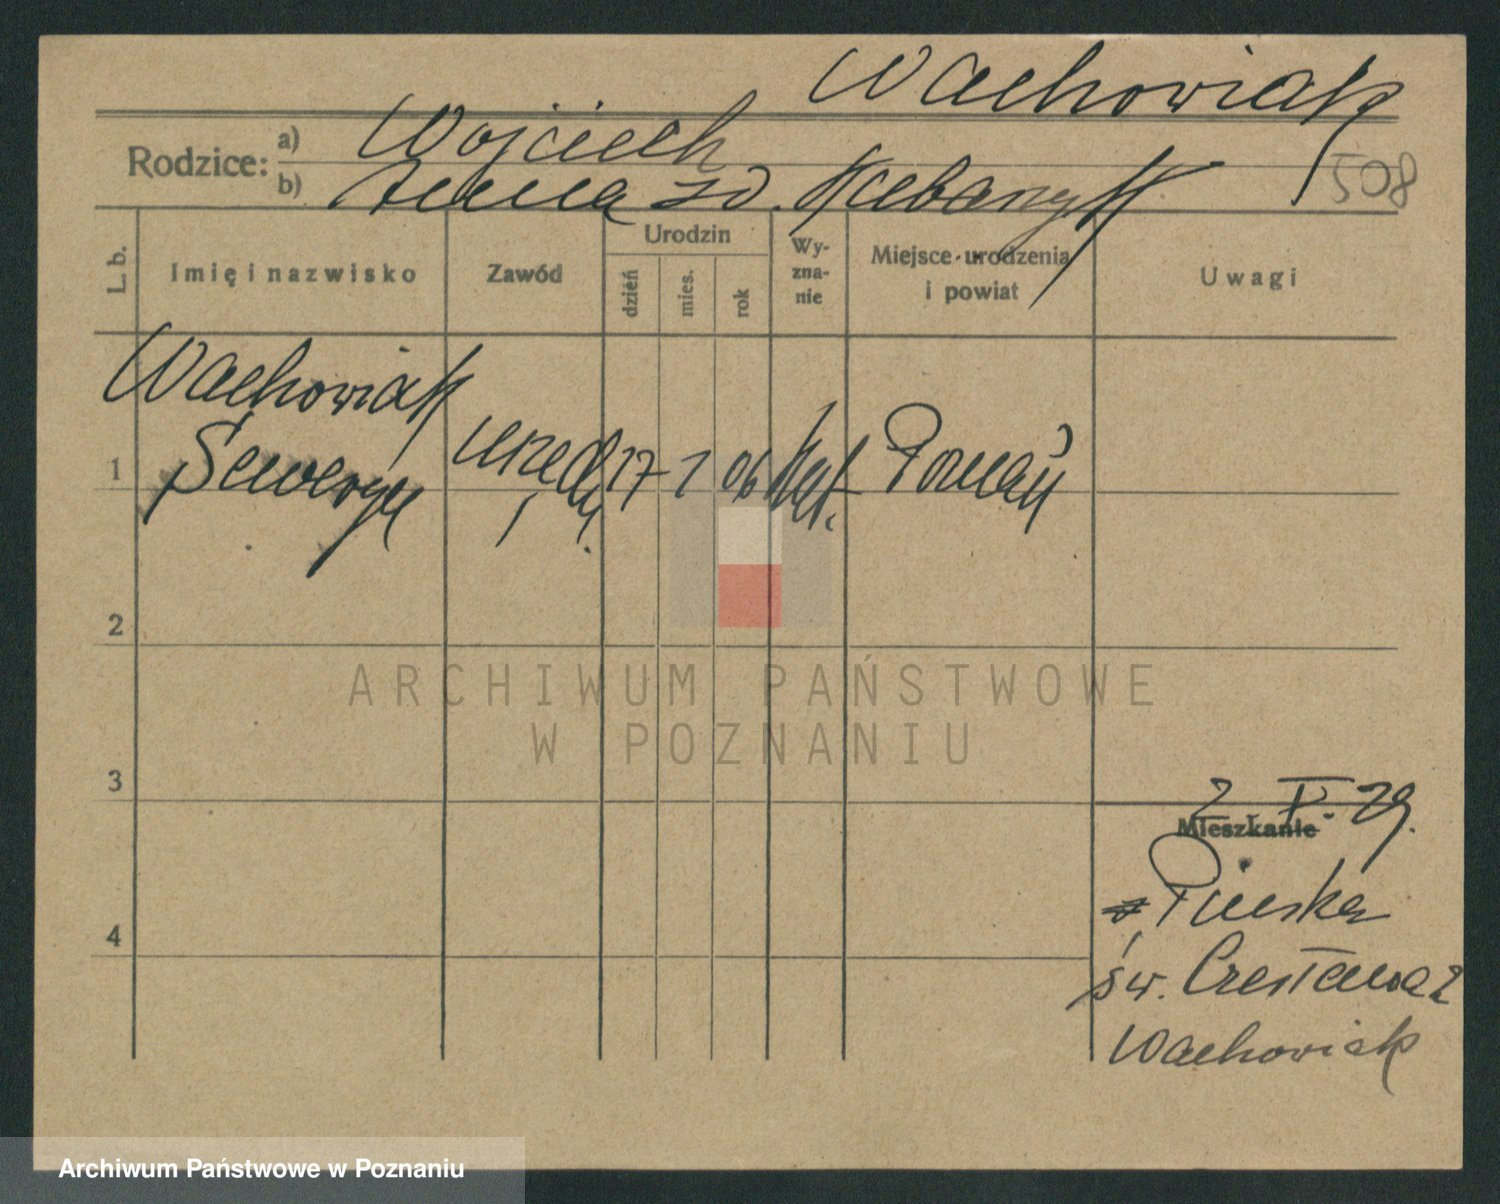 Wachowiak
Rodzice: a) Wojciech
b) Anna zd.
508
L. b.
Imię i nazwisko
Zawód
Urodzin
dzień
mies.
rok
Wy-
zna-
nie
Miejsce urodzenia
i powiat
Uwagi
Wachowiak
1 Seweryn urzędn. 17 1 06 kat. Poznań
2
ARCHIWUM PAŃSTWOWE
W POZNANIU
3
2 V. 29.
Mieszkanie
św. Czesława 2
4
Wachowiak
Archiwum Państwowe w Poznaniu